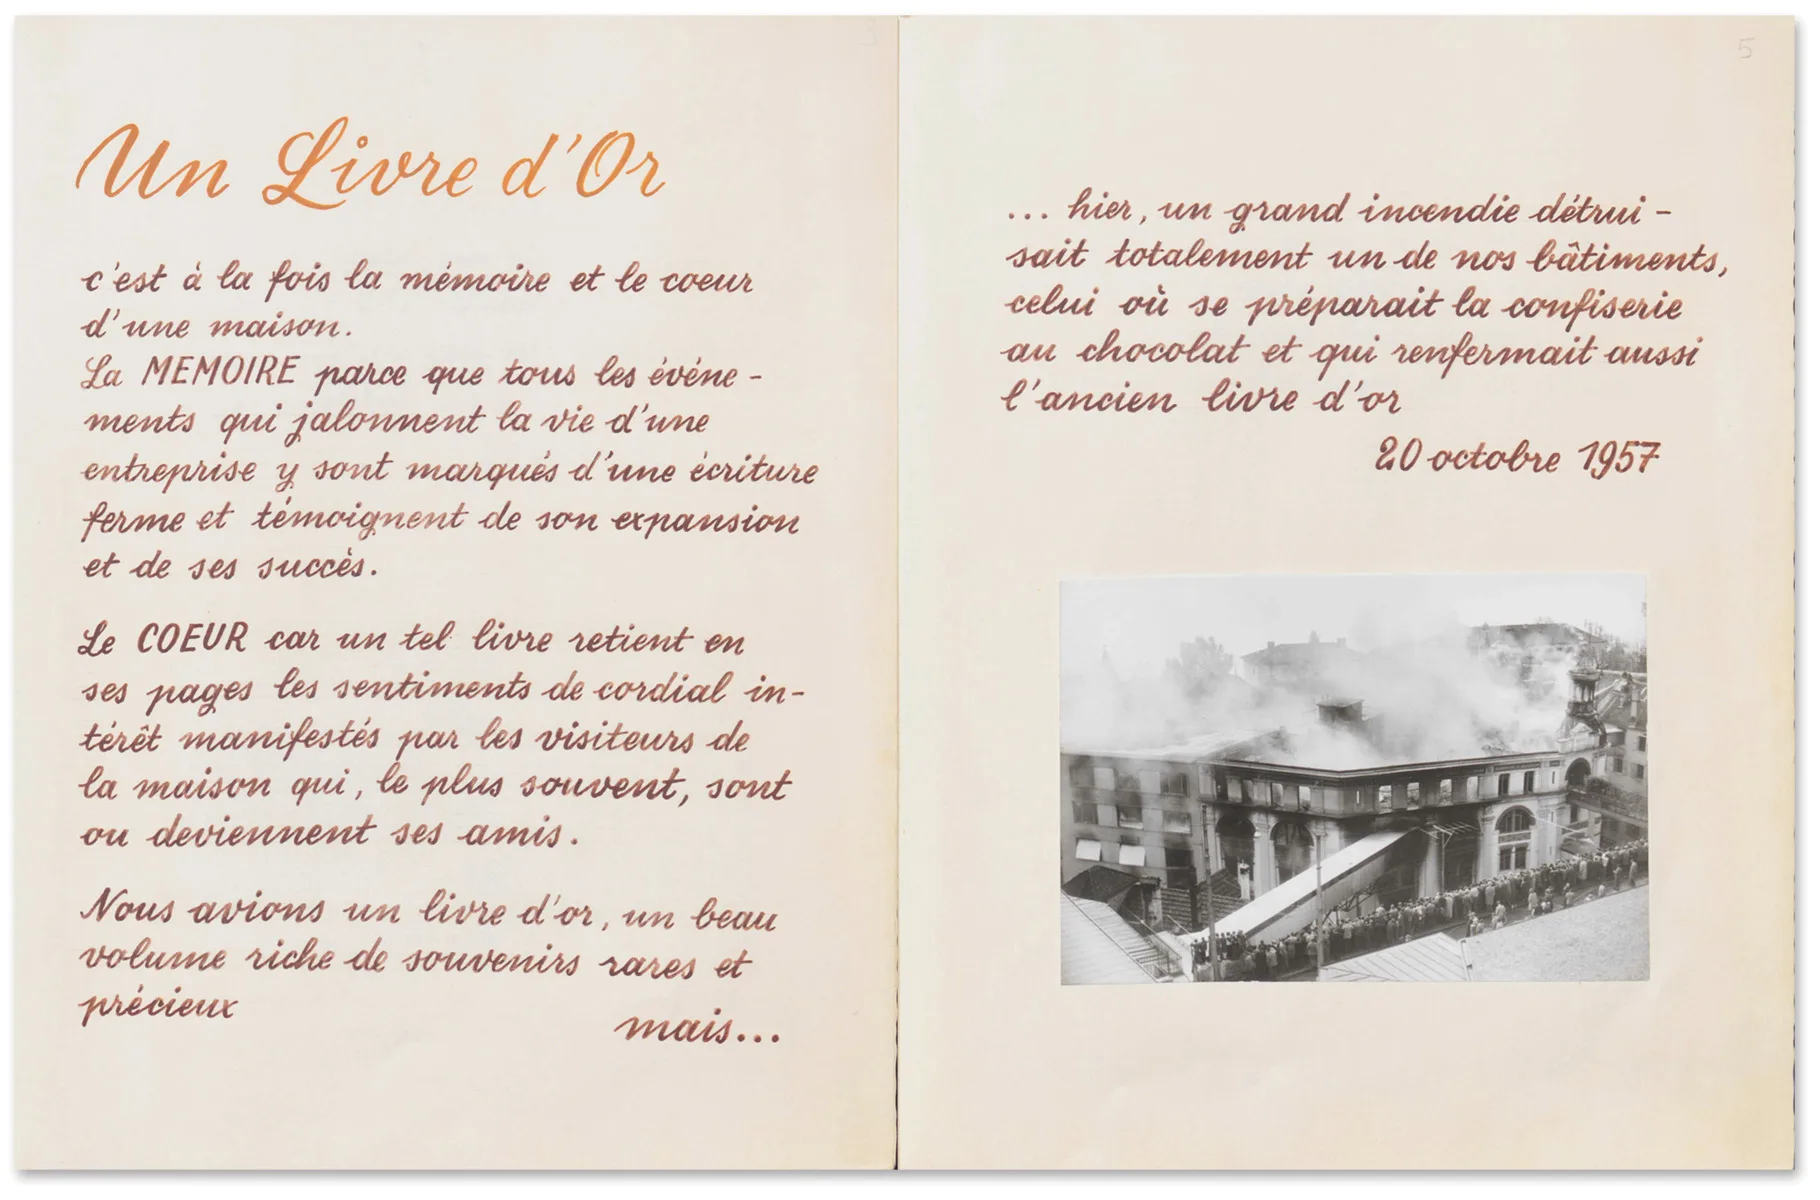 Un Livre d'Or
c'est à la fois la mémoire et le coeur
d'une maison.
La MEMOIRE parce que tous les événe-
ments qui jalonnent la vie d'une
entreprise y sont marqués d'une écriture
ferme et témoignent de son expansion
et de ses succès.
Le COEUR car un tel livre retient en
ses pages les sentiments de cordial in-
térêt manifestés par les visiteurs de
la maison qui, le plus souvent, sont
ou deviennent ses amis.
Nous avions un livre d'or, un beau
volume riche de souvenirs rares et
précieux
mais...
5
... hier, un grand incendie détrui-
sait totalement un de nos bâtiments,
celui où se préparait la confiserie
au chocolat et qui renfermait aussi
l'ancien livre d'or
20 octobre 1957